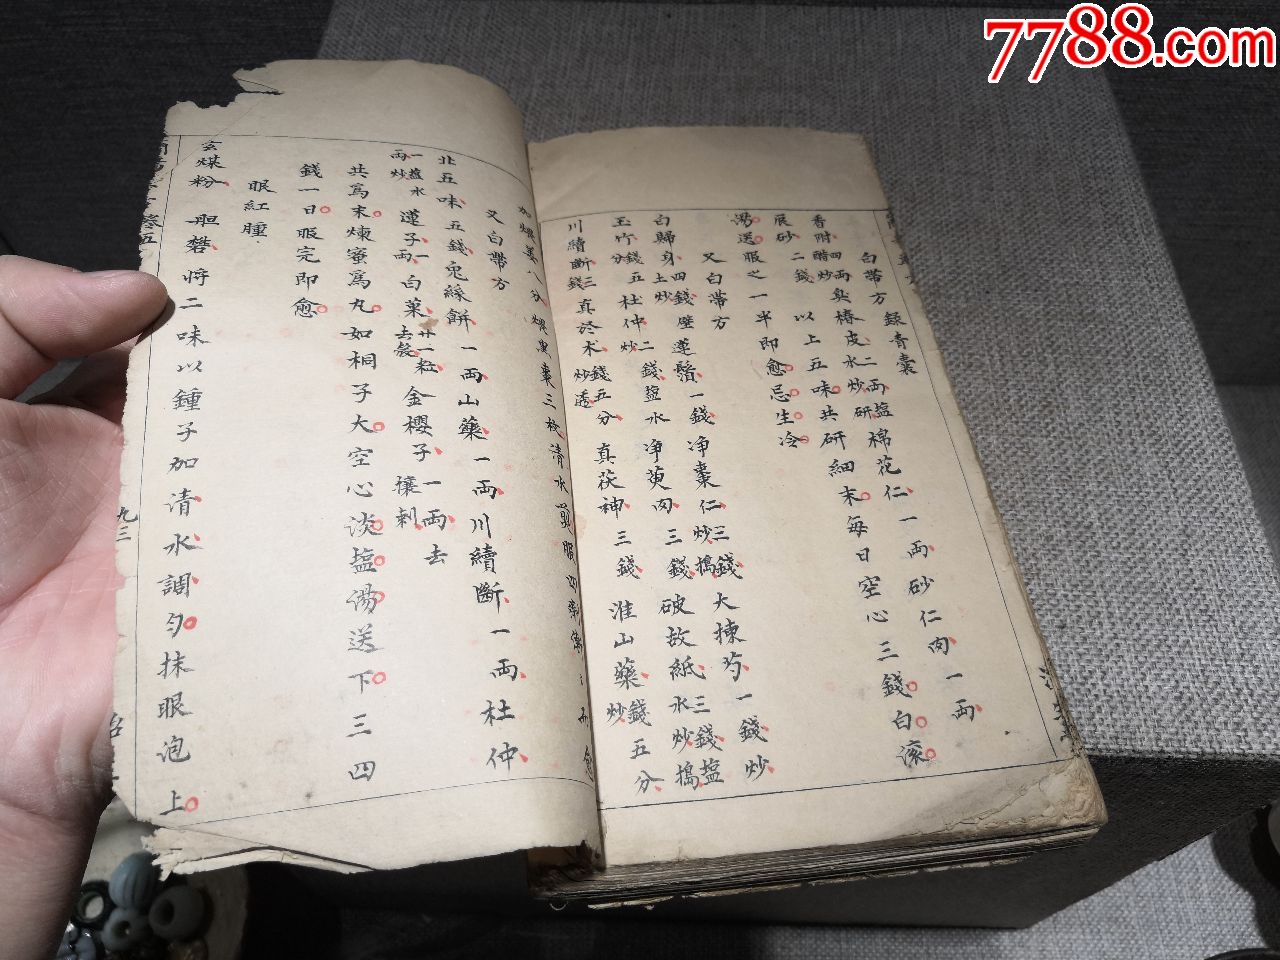 7788.com
白帶方 錄青囊
香附四兩醋炒 臭椿皮二兩水炒研 塩棉花仁一兩 砂仁肉一兩
辰砂二錢 以上五味共研細末每日空心三錢白滚
湯送服之一半即愈忌生冷
又白帶方
白歸身四錢土炒 壁蓮鬚一錢 净棗仁三錢炒搗 大揀芍一錢炒
玉竹五錢 杜仲二錢塩水炒 净萸肉三錢 破故紙三錢塩水炒搗
川續斷三錢 真於术錢五分炒透 真茯神三錢 淮山藥錢五分炒
又白帶方
北五味五錢 兔絲餅一兩 山藥一兩 川續斷一兩 杜仲
一兩塩水炒 蓮子一兩 白菓廿一粒去殼 金櫻子一兩去穰剌
共爲末煉蜜爲丸如桐子大空心淡塩湯送下三四
錢一日服完即愈
眼紅腫
玄煤粉 胆礬 將二味以鍾子加清水調匀抹眼泡上
九三